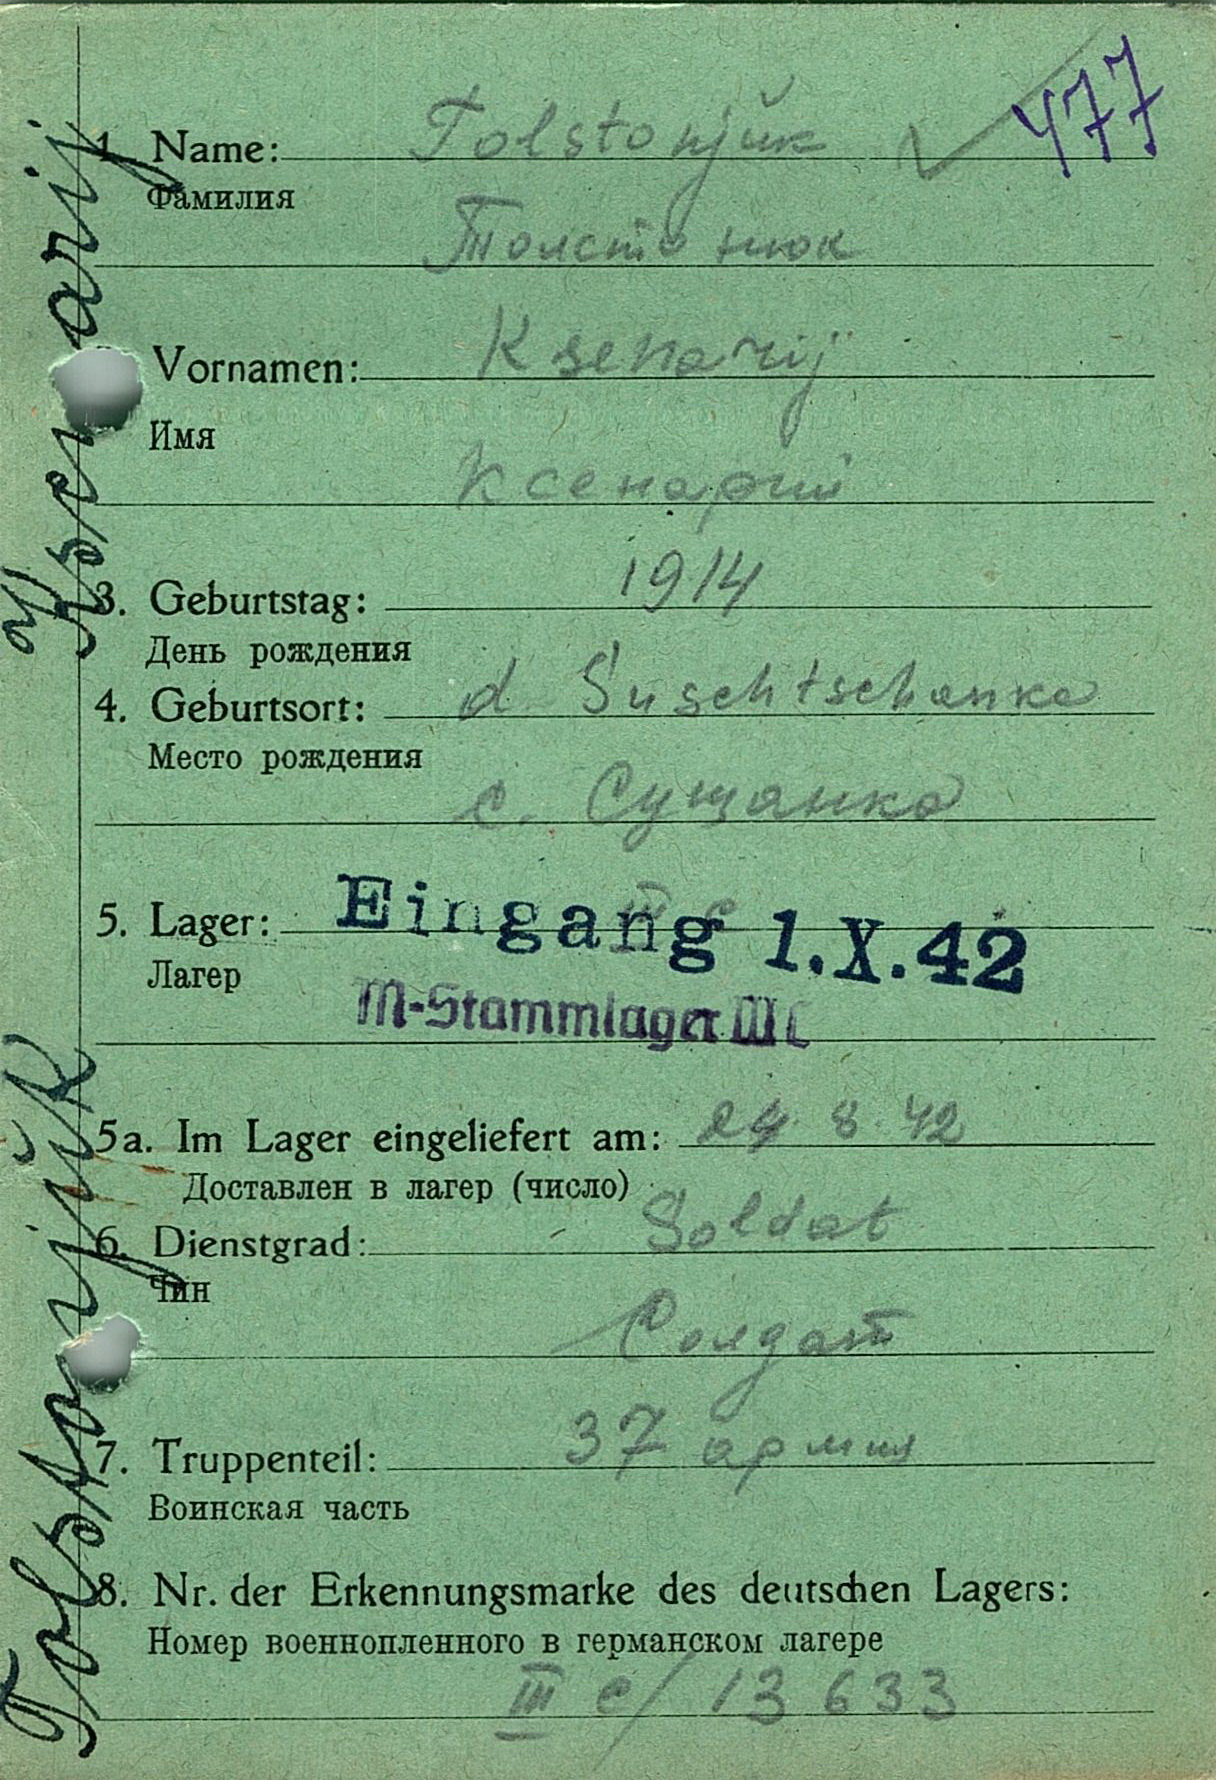 477
1. Name: Tolstonjŭk
Фамилия
Толстонюк
Vornamen: Ksenarij
Имя
Ксенарий
3. Geburtstag: 1914
День рождения
4. Geburtsort: d. Suschtschanka
Место рождения
с. Сущанка
5. Lager: III C
Eingang 1.X.42
Лагер
M-Stammlager III C
5a. Im Lager eingeliefert am: 24.8.42
Доставлен в лагер (число)
6. Dienstgrad: Soldat
Чин
Солдат
7. Truppenteil: 37 армия
Воинская часть
8. Nr. der Erkennungsmarke des deutschen Lagers:
Номер военнопленного в германском лагере
III C/13633
Tolstonjŭk Ksenarij